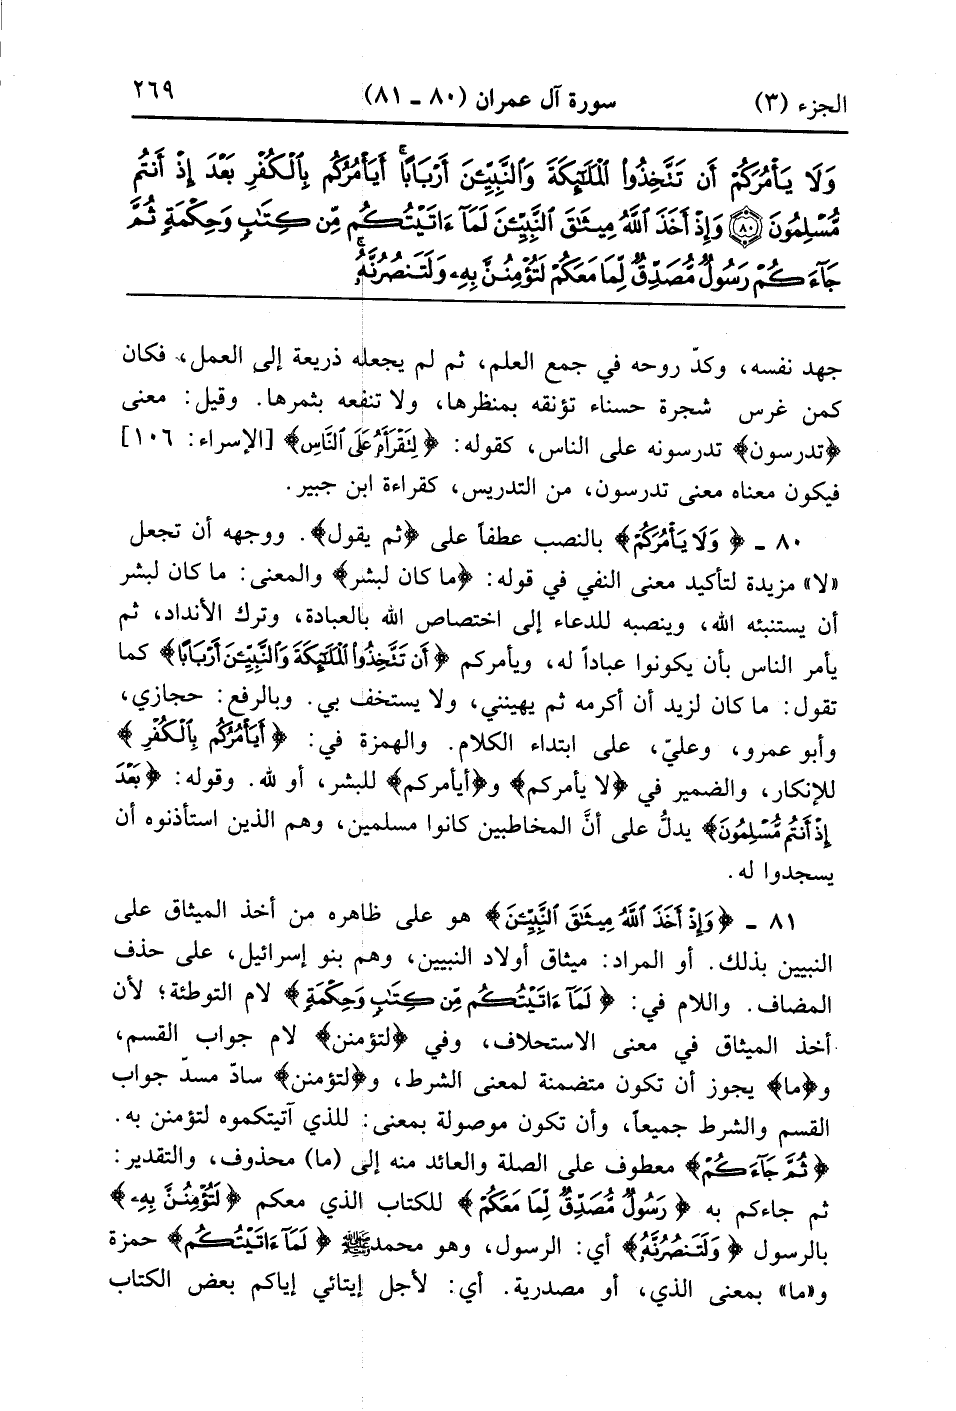 الجزء (٣) سورة آل عمران (٨٠ - ٨١) ٢٦٩
وَلَا يَأْمُرَكُمْ أَن تَتَّخِذُوا۟ الْمَلَٰٓئِكَةَ وَالنَّبِيِّۦنَ أَرْبَابًا أَيَأْمُرُكُم بِالْكُفْرِ بَعْدَ إِذْ أَنتُم
مُّسْلِمُونَ ٨٠ وَإِذْ أَخَذَ اللَّهُ مِيثَٰقَ النَّبِيِّۦنَ لَمَآ ءَاتَيْتُكُم مِّن كِتَٰبٍ وَحِكْمَةٍ ثُمَّ
جَآءَكُمْ رَسُولٌ مُّصَدِّقٌ لِّمَا مَعَكُمْ لَتُؤْمِنُنَّ بِهِۦ وَلَتَنصُرُنَّهُۥ
جهد نفسه، وكدّ روحه في جمع العلم، ثم لم يجعله ذريعة إلى العمل، فكان
كمن غرس شجرة حسناء تؤنقه بمنظرها، ولا تنفعه بثمرها. وقيل: معنى
﴿تدرسون﴾ تدرسونه على الناس، كقوله: ﴿لِتَقْرَأَهُ عَلَى النَّاسِ﴾ [الإسراء: ١٠٦]
فيكون معناه معنى تدرسون، من التدريس، كقراءة ابن جبير.
٨٠ - ﴿وَلَا يَأْمُرَكُمْ﴾ بالنصب عطفاً على ﴿ثم يقول﴾. ووجهه أن تجعل
«لا» مزيدة لتأكيد معنى النفي في قوله: ﴿ما كان لبشر﴾ والمعنى: ما كان لبشر
أن يستنبئه الله، وينصبه للدعاء إلى اختصاص الله بالعبادة، وترك الأنداد، ثم
يأمر الناس بأن يكونوا عباداً له، ويأمركم ﴿أَن تَتَّخِذُوا۟ الْمَلَٰٓئِكَةَ وَالنَّبِيِّۦنَ أَرْبَابًا﴾ كما
تقول: ما كان لزيد أن أكرمه ثم يهينني، ولا يستخف بي. وبالرفع: حجازي،
وأبو عمرو، وعليّ، على ابتداء الكلام. والهمزة في: ﴿أَيَأْمُرُكُم بِالْكُفْرِ﴾
للإنكار، والضمير في ﴿لا يأمركم﴾ و﴿أيأمركم﴾ للبشر، أو لله. وقوله: ﴿بَعْدَ
إِذْ أَنتُم مُّسْلِمُونَ﴾ يدلُّ على أنَّ المخاطبين كانوا مسلمين، وهم الذين استأذنوه أن
يسجدوا له.
٨١ - ﴿وَإِذْ أَخَذَ اللَّهُ مِيثَٰقَ النَّبِيِّۦنَ﴾ هو على ظاهره من أخذ الميثاق على
النبيين بذلك. أو المراد: ميثاق أولاد النبيين، وهم بنو إسرائيل، على حذف
المضاف. واللام في: ﴿لَمَآ ءَاتَيْتُكُم مِّن كِتَٰبٍ وَحِكْمَةٍ﴾ لام التوطئة؛ لأن
أخذ الميثاق في معنى الاستحلاف، وفي ﴿لتؤمنن﴾ لام جواب القسم،
و﴿ما﴾ يجوز أن تكون متضمنة لمعنى الشرط، و﴿لتؤمنن﴾ سادّ مسدّ جواب
القسم والشرط جميعاً، وأن تكون موصولة بمعنى: للذي آتيتكموه لتؤمنن به.
﴿ثُمَّ جَآءَكُمْ﴾ معطوف على الصلة والعائد منه إلى (ما) محذوف، والتقدير:
ثم جاءكم به ﴿رَسُولٌ مُّصَدِّقٌ لِّمَا مَعَكُمْ﴾ للكتاب الذي معكم ﴿لَتُؤْمِنُنَّ بِهِۦ﴾
بالرسول ﴿وَلَتَنصُرُنَّهُ﴾ أي: الرسول، وهو محمد ﷺ ﴿لَمَآ ءَاتَيْتُكُم﴾ حمزة
و«ما» بمعنى الذي، أو مصدرية. أي: لأجل إيتائي إياكم بعض الكتاب